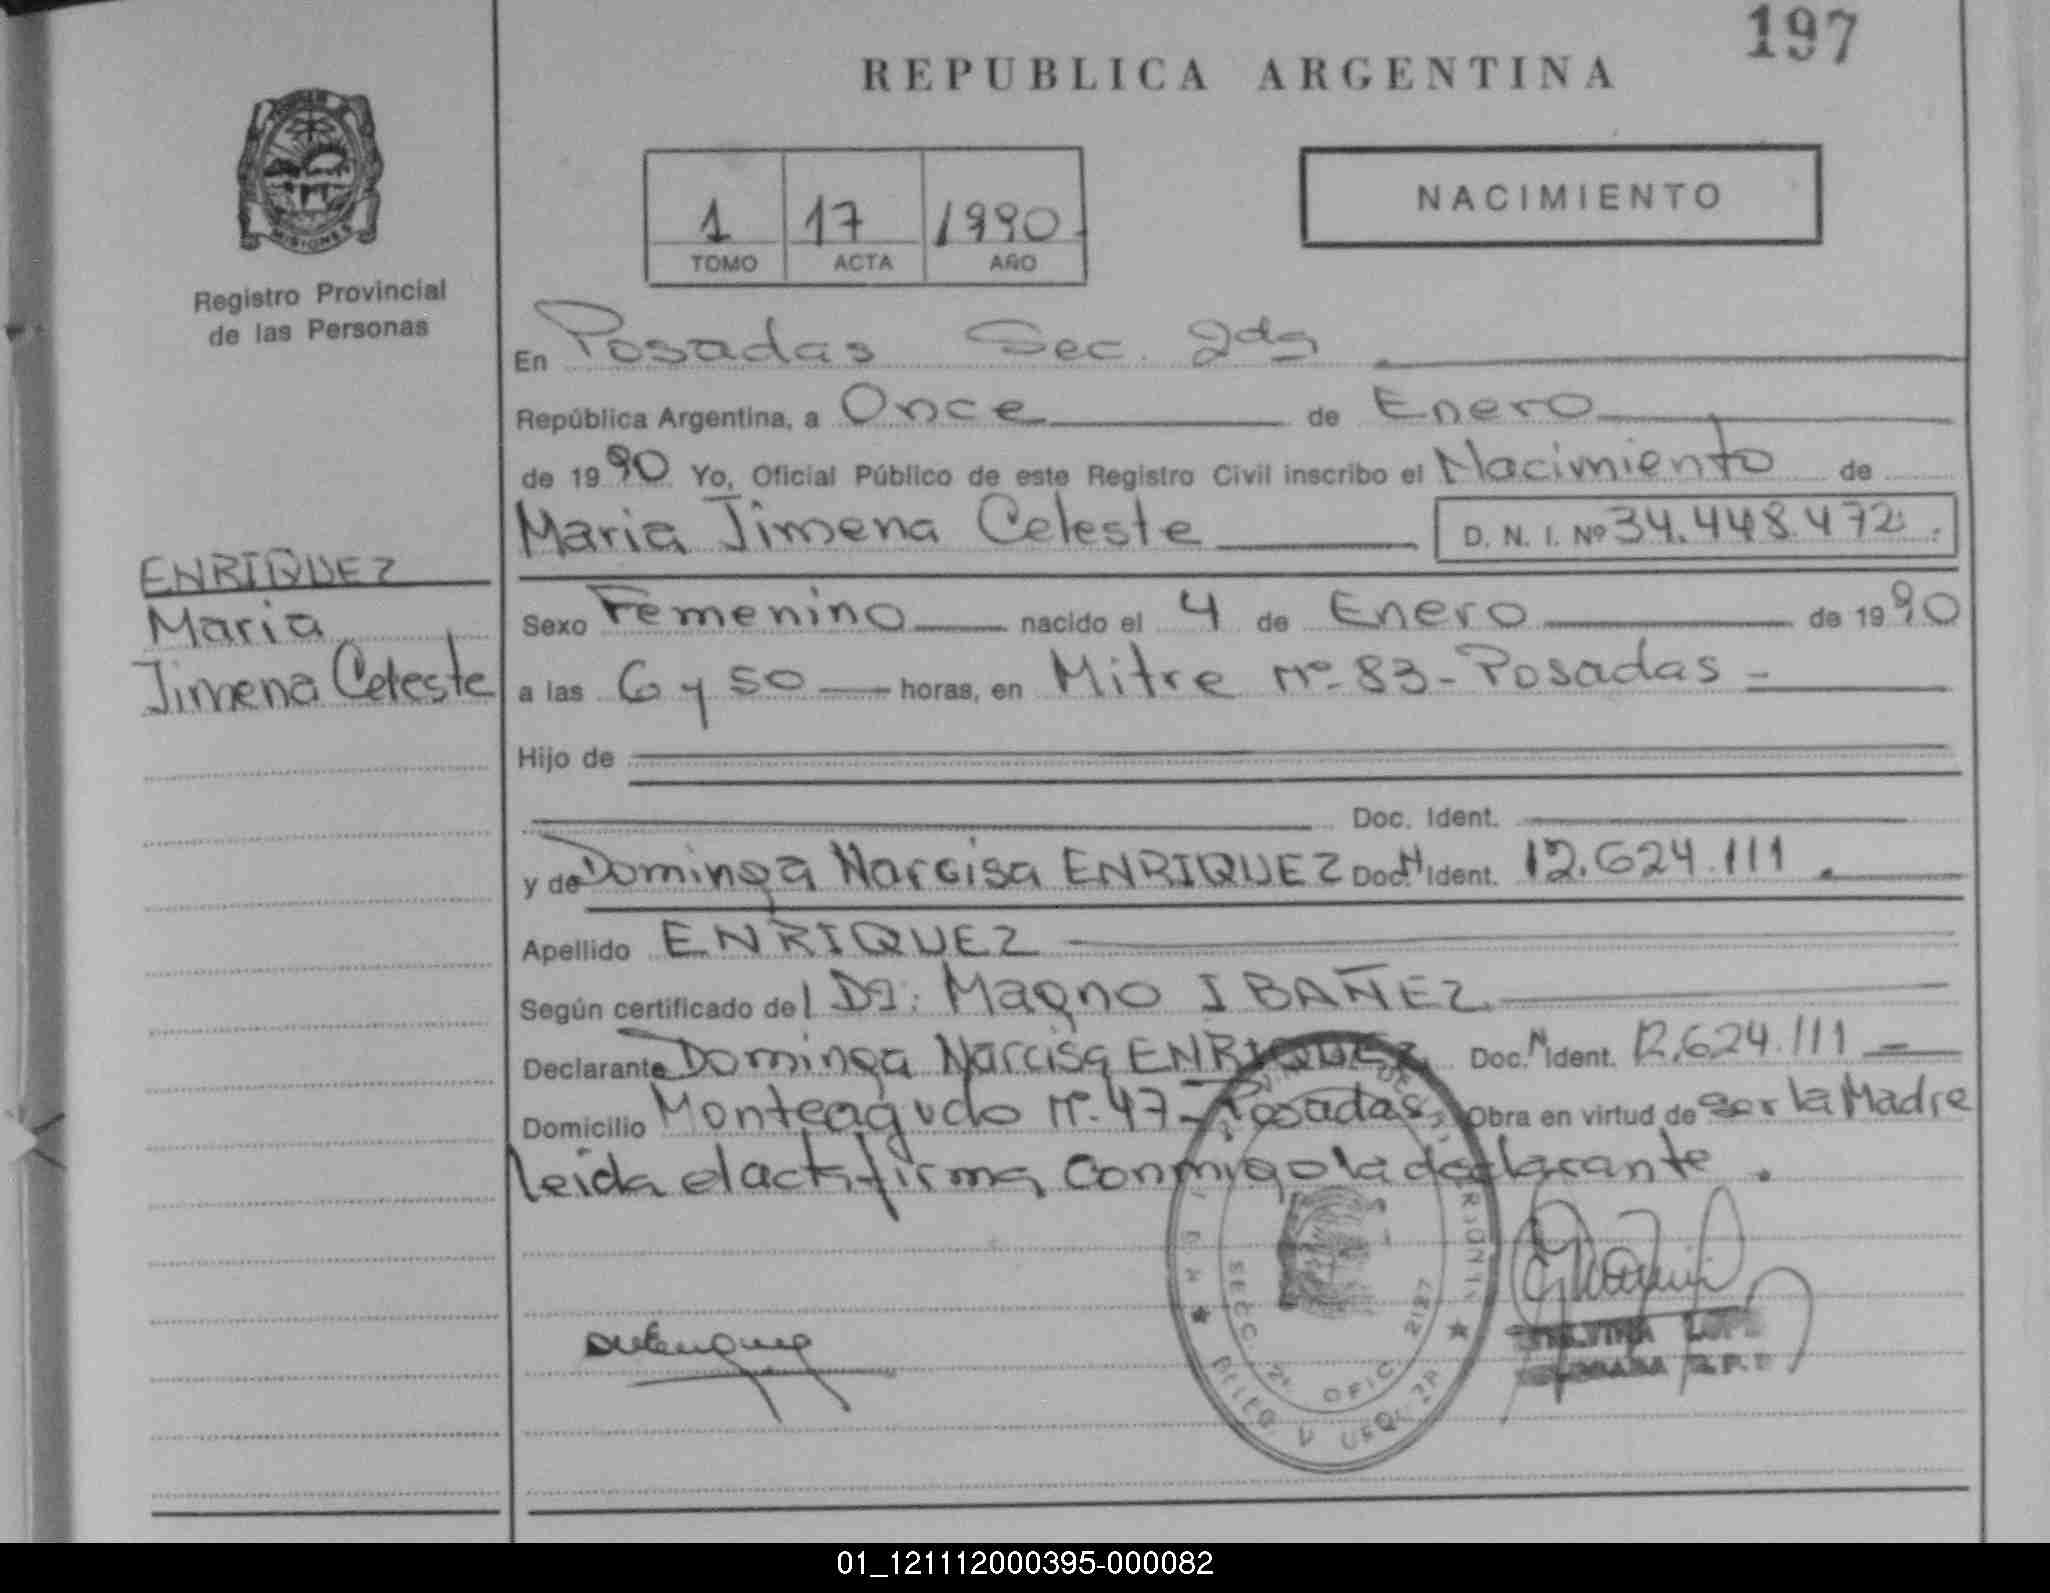 197
REPUBLICA ARGENTINA
MISIONES
Registro Provincial
de las Personas
1 17 1990
TOMO ACTA AÑO
NACIMIENTO
En Posadas Sec. 2da
República Argentina, a Once de Enero
de 1990 Yo, Oficial Público de este Registro Civil inscribo el Nacimiento de
Maria Jimena Celeste D. N. I. Nº 34.448.472
ENRIQUEZ
Maria
Jimena Celeste
Sexo Femenino nacido el 4 de Enero de 1990
a las 6 y 50 horas, en Mitre nº 83 - Posadas -
Hijo de
Doc. Ident.
y de Dominga Narcisa ENRIQUEZ Doc. N Ident. 12.624.111.
Apellido ENRIQUEZ
Según certificado del Dr: Magno IBAÑEZ
Declarante Dominga Narcisa ENRIQUEZ Doc. N Ident. 12.624.111
Domicilio Monteagudo nº 47 - Posadas, Obra en virtud de ser la Madre
leida el acta firma conmigo la declarante.
SECC. 2ª OFIC. 2127
01_121112000395-000082